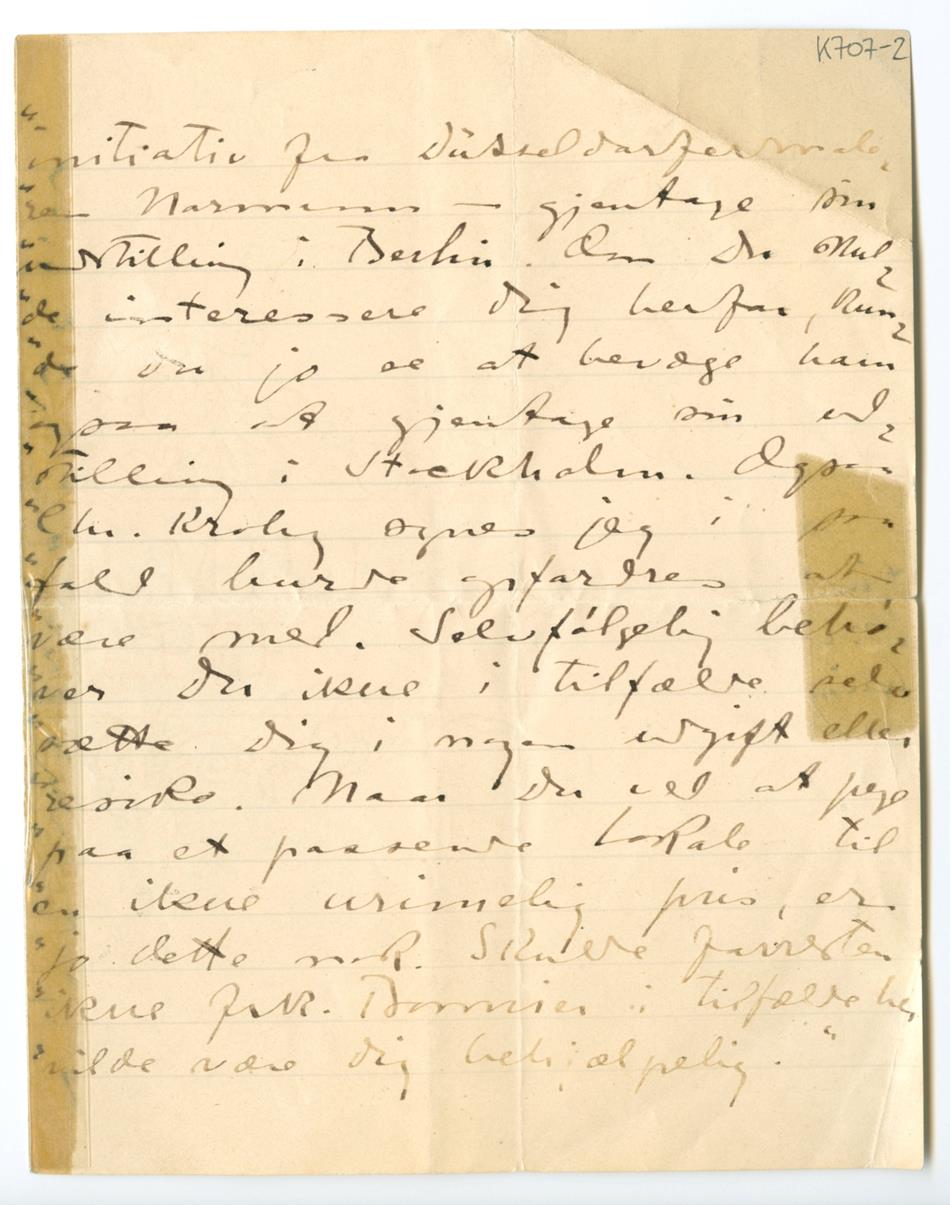 K707-2
"initiativ fra Düsseldorfermale,
"ren Normann — gjentage sin
"udstilling i Berlin. Om Du skul,
"de interessere Dig herfor, kun,
"de du jo se at bevæge ham
"ogsaa at gjentage sin ud,
"stilling i Stockholm. Ogsaa
"Chr. Krohg synes jeg i saa
"fald burde opfordres at
"være med. Selvfölgelig behö,
"ver Du ikke i tilfælde selv
"sætte Dig i nogen udgift eller
"resiko. Naar Du ved at pege
"paa et passende lokale til
"en ikke urimelig pris, er
"jo dette nok. Skulde forresten
"ikke frk. Bonnier i tilfælde
"vilde være dig behjælpelig."